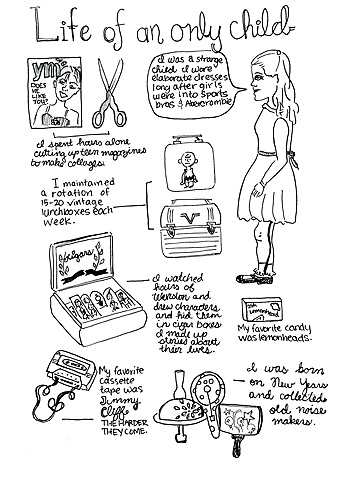 Life of an only child
ym
DOES
HE
LIKE
YOU?
I was a strange
child I wore
elaborate dresses
long after girls
were into sports
bras & Abercrombie
I spent hours alone
cutting up teen magazines
to make collages.
I maintained
a rotation of
15-20 vintage
lunchboxes each
week.
cigars
I watched
hours of
television and
drew characters
and hid them
in cigar boxes
I made up
stories about
their lives.
Lemonhead
My favorite candy
was lemonheads.
My favorite
cassette
tape was
Jimmy
Cliff
THE HARDER
THEY COME.
I was born
on New Years
and collected
old noise
makers.